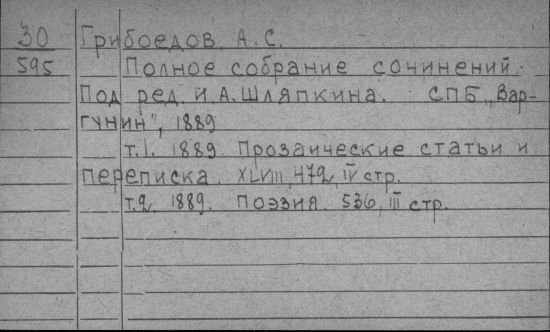 30 Грибоедов, А.С.
595 Полное собрание сочинений.
Под ред. И.А.Шляпкина. СПБ, „Вар-
гунин", 1889
т.1. 1889. Прозаические статьи и
переписка. XLVIII, 472, IV стр.
т.2. 1889. Поэзия. 536, III стр.